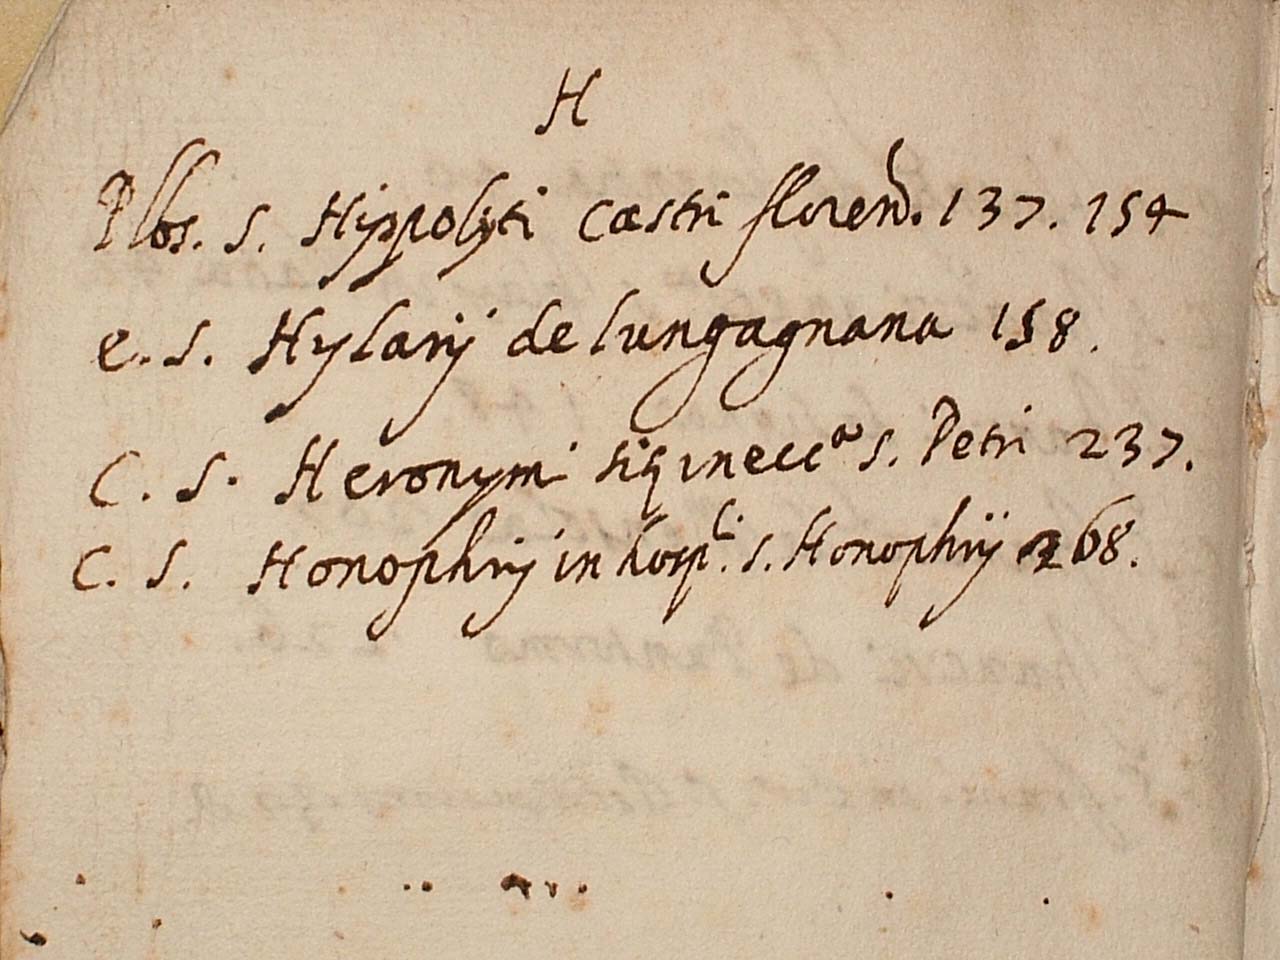 H
Plbs. S. Hippolyti Castri floren. 137. 154
e. S. Hylarij de lungagnana 158.
C. S. Heronymi sit in ecc.a S. Petri 237.
C. S. Honophrij in hosp.li S. Honophrij 268.